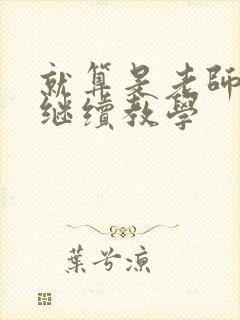 就算是老師
继續教學
葉兮涼